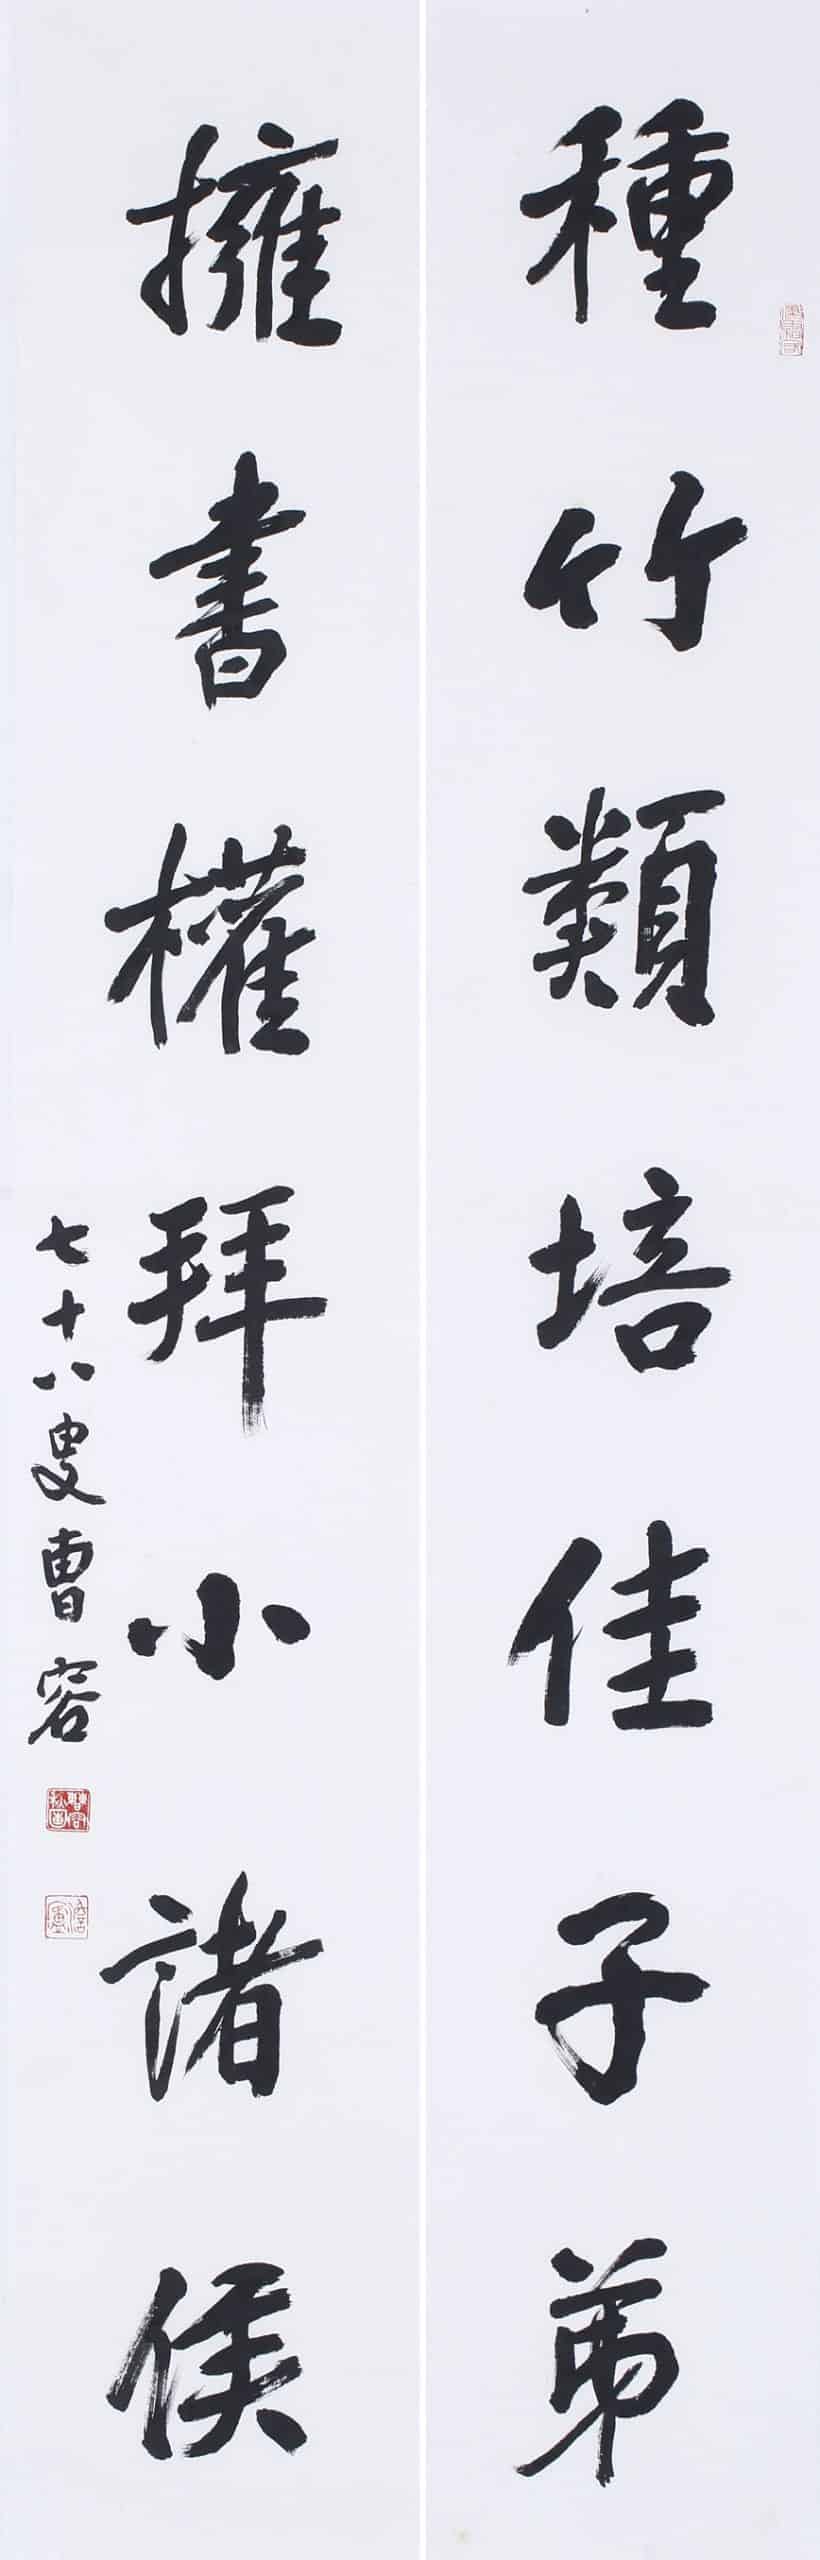 種竹類培佳子弟
擁書權拜小諸侯
七十八叟曹容